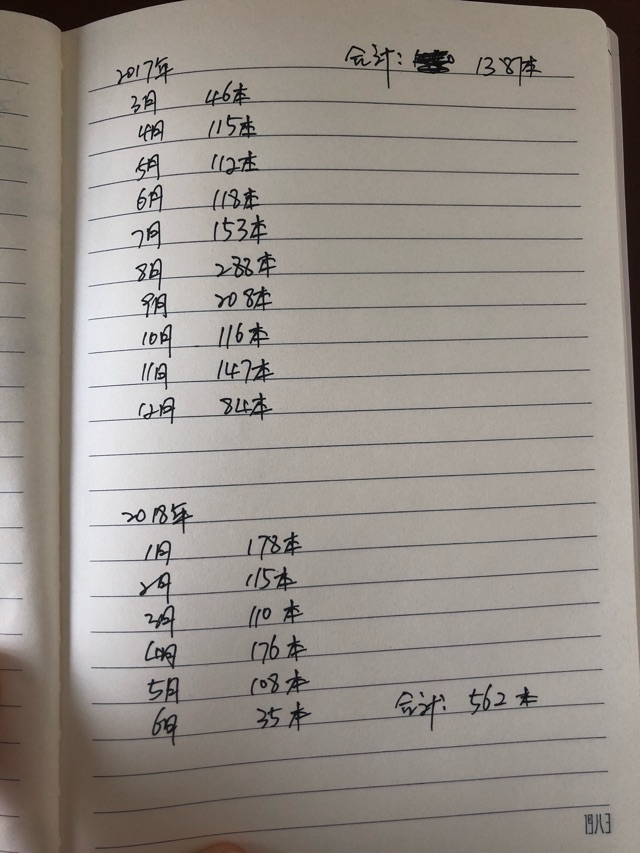 2017年 合计: 1387本
3月 46本
4月 115本
5月 112本
6月 118本
7月 153本
8月 288本
9月 208本
10月 116本
11月 147本
12月 84本
2018年
1月 178本
2月 115本
3月 110本
4月 176本
5月 108本
6月 35本 合计: 562本